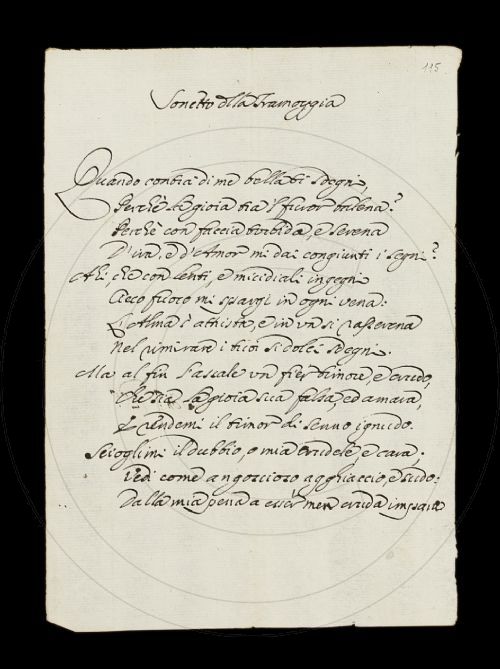 115
Sonetto della Tramoggia
Quando contra di me bella ti sdegni,
Perchè la gioia tra'l furor balena?
Perchè con faccia torbida, e serena
D'ira, e d'Amor mi dai congiunti i segni?
Ahi, che con lenti, e micidiali ingegni
Cieco fuoco mi spargi in ogni vena:
L'Alma s'attrista, e in un si rasserena
Nel rimirare i tuoi sì dolci sdegni.
Ma al fin l'assale un fier timore, e crudo,
Che sia la gioia sua falsa, ed amara,
E rendemi il timor di senno ignudo.
Scioglimi il dubbio, o mia crudele, e cara,
Vedi come angoscioso agghiaccio, e sudo:
Dalla mia pena a esser men cruda impara